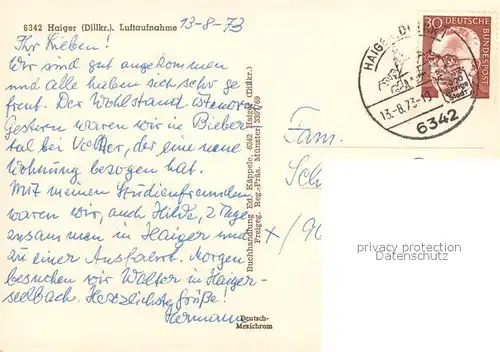 6342 Haiger (Dillkr.). Luftaufnahme
13-8-73
Ihr Lieben!
Wir sind gut angekommen
und alle haben sich sehr ge
freut. Der Wohlstand ist enorm
Gestern waren wir in Bieber
tal bei Volker, der eine neue
Wohnung bezogen hat.
Mit meinen Studienfreunden
waren wir, auch Hilde, 2 Tage
zusammen in Haiger und
zu einer Ausfahrt. Morgen
besuchen wir Walter in Haiger-
seelbach. Herzlichste Grüße!
Hermann
Buchhandlung Ed. Käppele, 6342 Haiger (Dillkr.)
Freigeg. Reg.-Präs. Münster 3390/69
Deutsch-
Mexichrom
30 DEUTSCHE
BUNDESPOST
HAIGER, DILLKR
13.-8.73-19
6342
Fam.
Sch
privacy protection
watermark